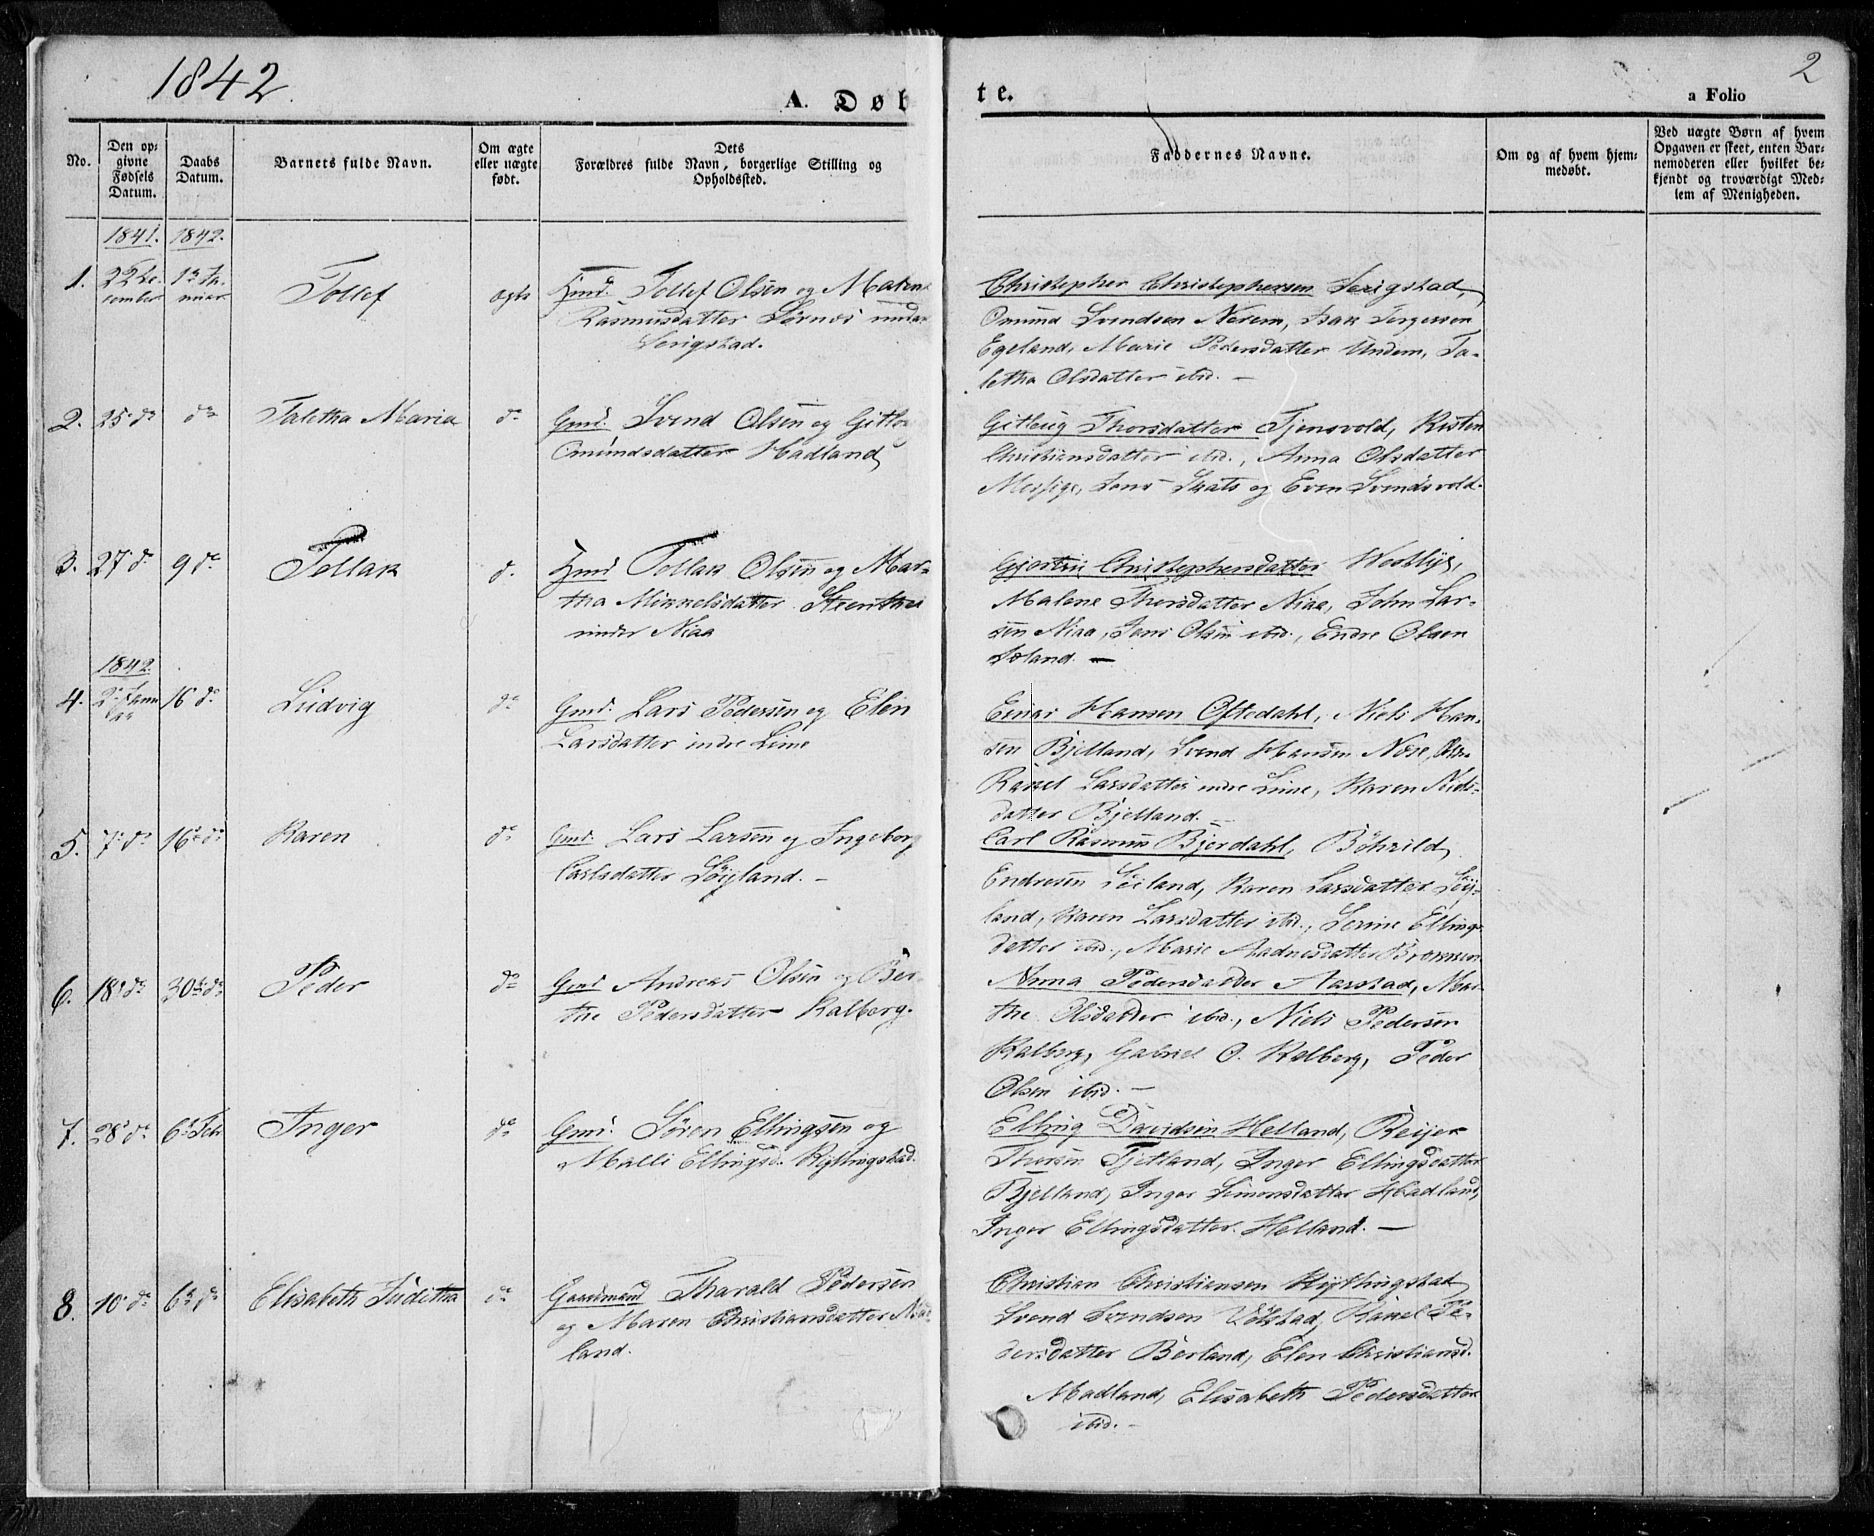 1842.
A. Døb
te.
2
a Folio
No.
Den op-
givne
Fødsels
Datum.
Daabs
Datum.
Barnets fulde Navn.
Om ægte
eller uægte
født.
Dets
Forældres fulde Navn, borgerlige Stilling og
Opholdssted.
Faddernes Navne.
Om og af hvem hjem-
medøbt.
Ved uægte Børn af hvem
Opgaven er skeet, enten Bar-
nemoderen eller hvilket be-
kjendt og troværdigt Med-
lem af Menigheden.
1841. 1842.
1. 22 De-
cember
Tollef
ægte
Huusmd. Tollef Olsen og Malene
Rasmusdatter Sørnes under
Serigstad.
Christopher Christophersen Serigstad,
Omund Svendsen Nesem, Isak Torgersen
Egeland, Marie Pedersdatter Undem, Ta-
letha Olsdatter ibid. —
2. 25 do do Taletha Maria do
Gmd. Svend Olsen og Gitlou
Omundsdatter Hadland
Gitloug Thorsdatter Tjensvold, Kisten
Christiansdatter ibid., Anna Olsdatter
Mossige, Jens Skats og Even Svendsvold.
3. 27 do 9 do Tollak d.
Tollak Olsen og Mar-
tha Mikkelsdatter
under Niaa
Christophersdatter Westlye,
Malene Thorsdatter Niaa, John Lar-
sen Niaa, Jens Olsen ibid., Endre Olsen
1842.
4. 2 Janu
ar
16 do Ludvig do
Gmd. Lars Pedersen og Elen
Larsdatter indre Lime
Einar Hansen Oftedahl, Niels Han-
sen Bjelland, Svend Hansen Nose,
Rakel Larsdatter indre Lime, Karen Niels-
datter Bjelland. —
5. 7 do 16 do Karen do
Gmd. Lars Larsen og Ingeborg
Carlsdatter Løyland. —
Carl Rasmus Bjerdahl,
Endresen Leiland, Karen Larsdatter Løy-
land, Karen Larsdatter ibid., Serine Ellings-
datter ibid., Marie Aadnesdatter
6. 18 do 30 do Peder do
Gmd Andreas Olsen og Ber-
the Pedersdatter Kalberg.
Anna Pedersdatter Aarstad, Mar-
the Olsdatter ibid., Niels Pedersen
Kalberg, Gabriel O. Kalberg, Peder
Olsen ibid. —
7. 28 do 6 Febr Inger do
Gmd. Søren Ellingsen og
Malli Ellingsd. Kyllingstad.
Elling Davidsen Helland, Reijer
Thorsen Tjetland, Inger Ellingsdatter
Bjelland, Inger Simonsdatter Hadland,
Inger Ellingsdatter Helland. —
8. 10 do 6 do Elisabeth Juditha do
Gaardmand Tharald Pedersen
og Maren Christiansdatter Mad-
land.
Christian Christiansen Kyllingstad
Svend Svendsen Ueland, Rakel Pe-
dersdatter Berland, Elen Christiansd.
Madland, Elisabeth Pedersdatter
ibid. —